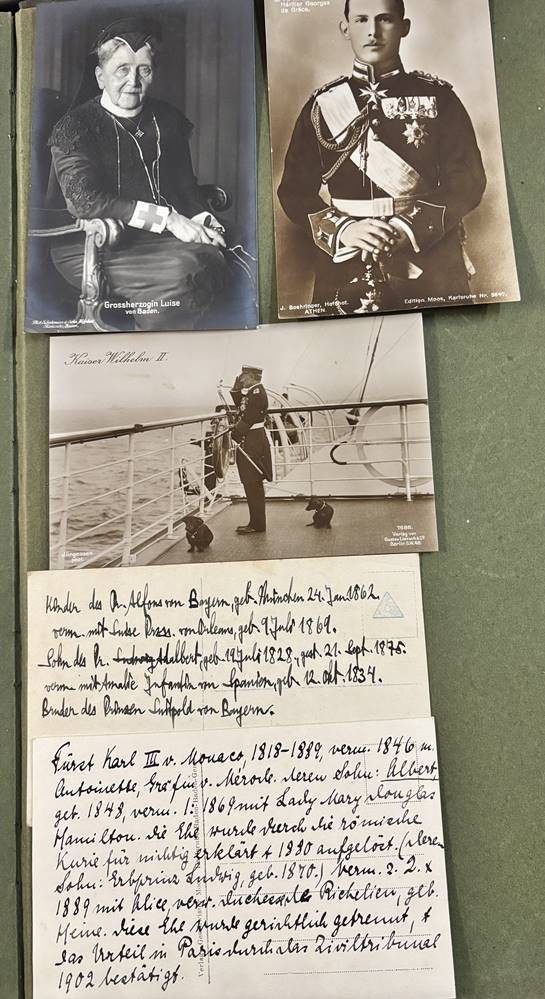 Grossherzogin Luise
von Baden.
Héritier Georges
de Grèce.
J. Boehringer, Hofphot.
ATHEN.
Edition Moos, Karlsruhe Nr. 5647.
Kaiser Wilhelm II.
Jürgensen
phot.
7686.
Verlag von
Gustav Liersch & Co.
Berlin S.W.48
Kinder des Pr. Alfons von Bayern, geb. München 24. Jan 1862.
verm. mit Luise Przss. von Orleans, geb. 9 Juli 1869.
Sohn des Pr. Ludwig Adalbert, geb. 19 Juli 1828, gest. 21. Sept. 1875.
verm. mit Amalie Infantin von Spanien, geb. 12. Okt. 1834.
Bruder des Prinzen Luitpold von Bayern.
Fürst Karl III v. Monaco, 1818-1889, verm. 1846 m.
Antoinette, Gräfin v. Mérode. deren Sohn: Albert,
geb. 1848, verm. 1: 1869 mit Lady Mary Douglas
Hamilton. die Ehe wurde durch die römische
Kurie für nichtig erklärt + 1880 aufgelöst. (deren
Sohn: Erbprinz Ludwig, geb. 1870.) verm. z. 2. x
1889 mit Alice, verw. Duchesse de Richelieu, geb.
Heine. diese Ehe wurde gerichtlich getrennt, +
das Urteil in Paris durch das Ziviltribunal
1902 bestätigt.